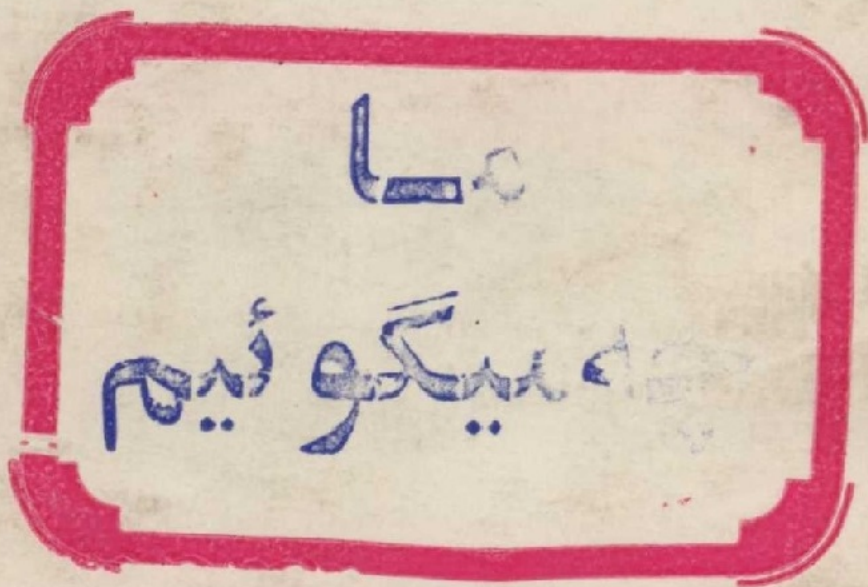 ما
چه میگوئیم